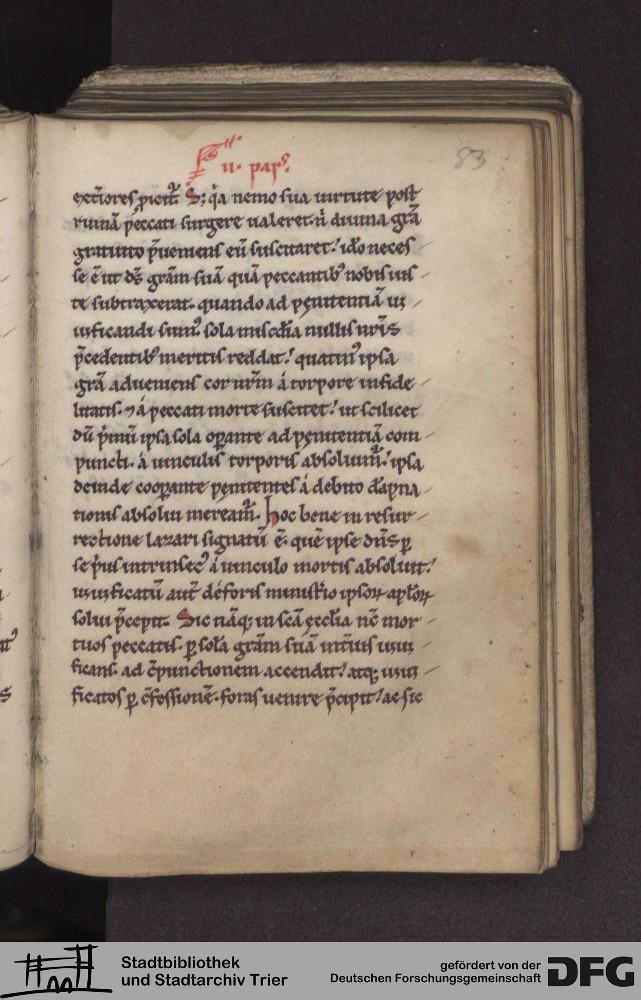 83
ii. pars.
ext̄iores picim̄. S; q̓a nemo sua uirtute post
ruinā peccati surgere ualeret. n̄ diuina grā
gratuito p̄ueniens eū suscitaret! idō neces
se ē ut ds̄ grām suā quā peccantib; nobis ius
te subtraxerat. quando ad penitentiā ui
uificandi sum᷒ sola misc̄dia nullis nr̄is
p̄cedentib; meritis reddat! quatin᷒ ipsa
grā adueniens cor nr̄m á torpore infide
litatis. ⁊ á peccati morte suscitet! ut scilicet
dū p̄mū ipsa sola oꝑante ad penitentiā com
puncti. á uinculis torporis absoluim᷒! ipsa
deinde cooꝑante penitentes á debito dāpna
tionis absolui mereām᷒. hoc bene in resur
rectione lazari signatū ē. quē ipse dn̄s ꝑ
se p̄us intrinsec᷒ á uinculo mortis absoluit!
uiuificatū aut̄ déforis ministło ipsoꝝ apłoꝝ
solui p̄cepit. Sic nāq; in scā ęcclia nc̄ mor
tuos peccatis. ꝑ solā grām suā int̄uis uiui
ficans. ad c̄punctionem accendit! atq; uiui
ficatos ꝑ c̄fessionē. foras uenire p̄cipit! ac sic
Stadtbibliothek
und Stadtarchiv Trier
gefördert von der
Deutschen Forschungsgemeinschaft
DFG